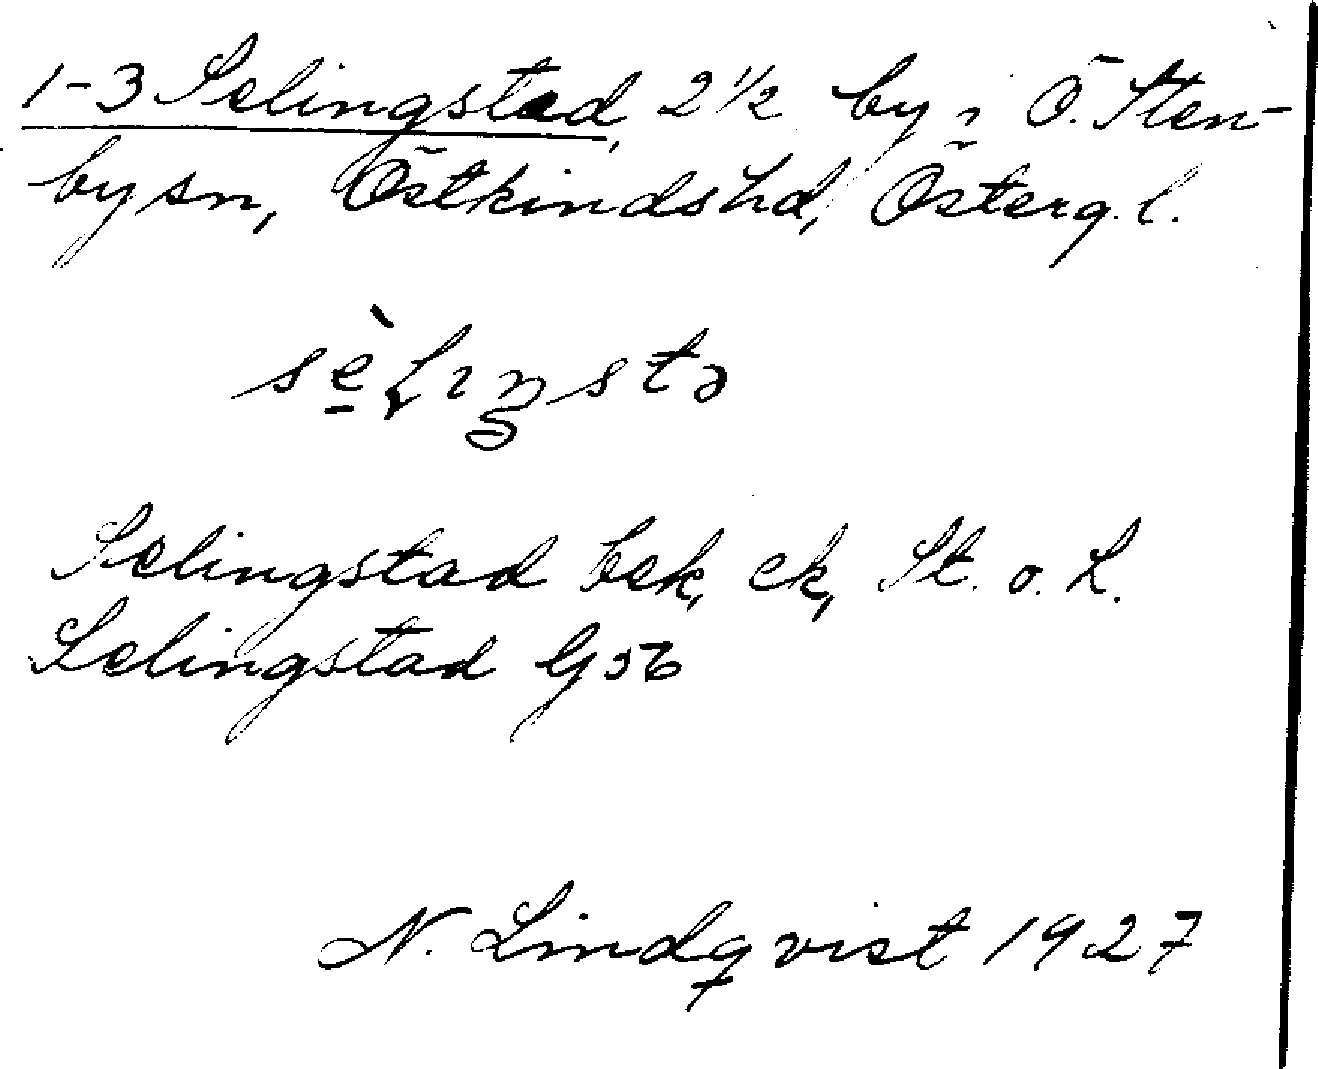 1-3 Selingstad, 2½ by i Ö. Sten-
by sn, Östkindshd, Österg. l.
Selingstad bek, ek, St. o. L.
Selingstad G56
N. Lindqvist 1927